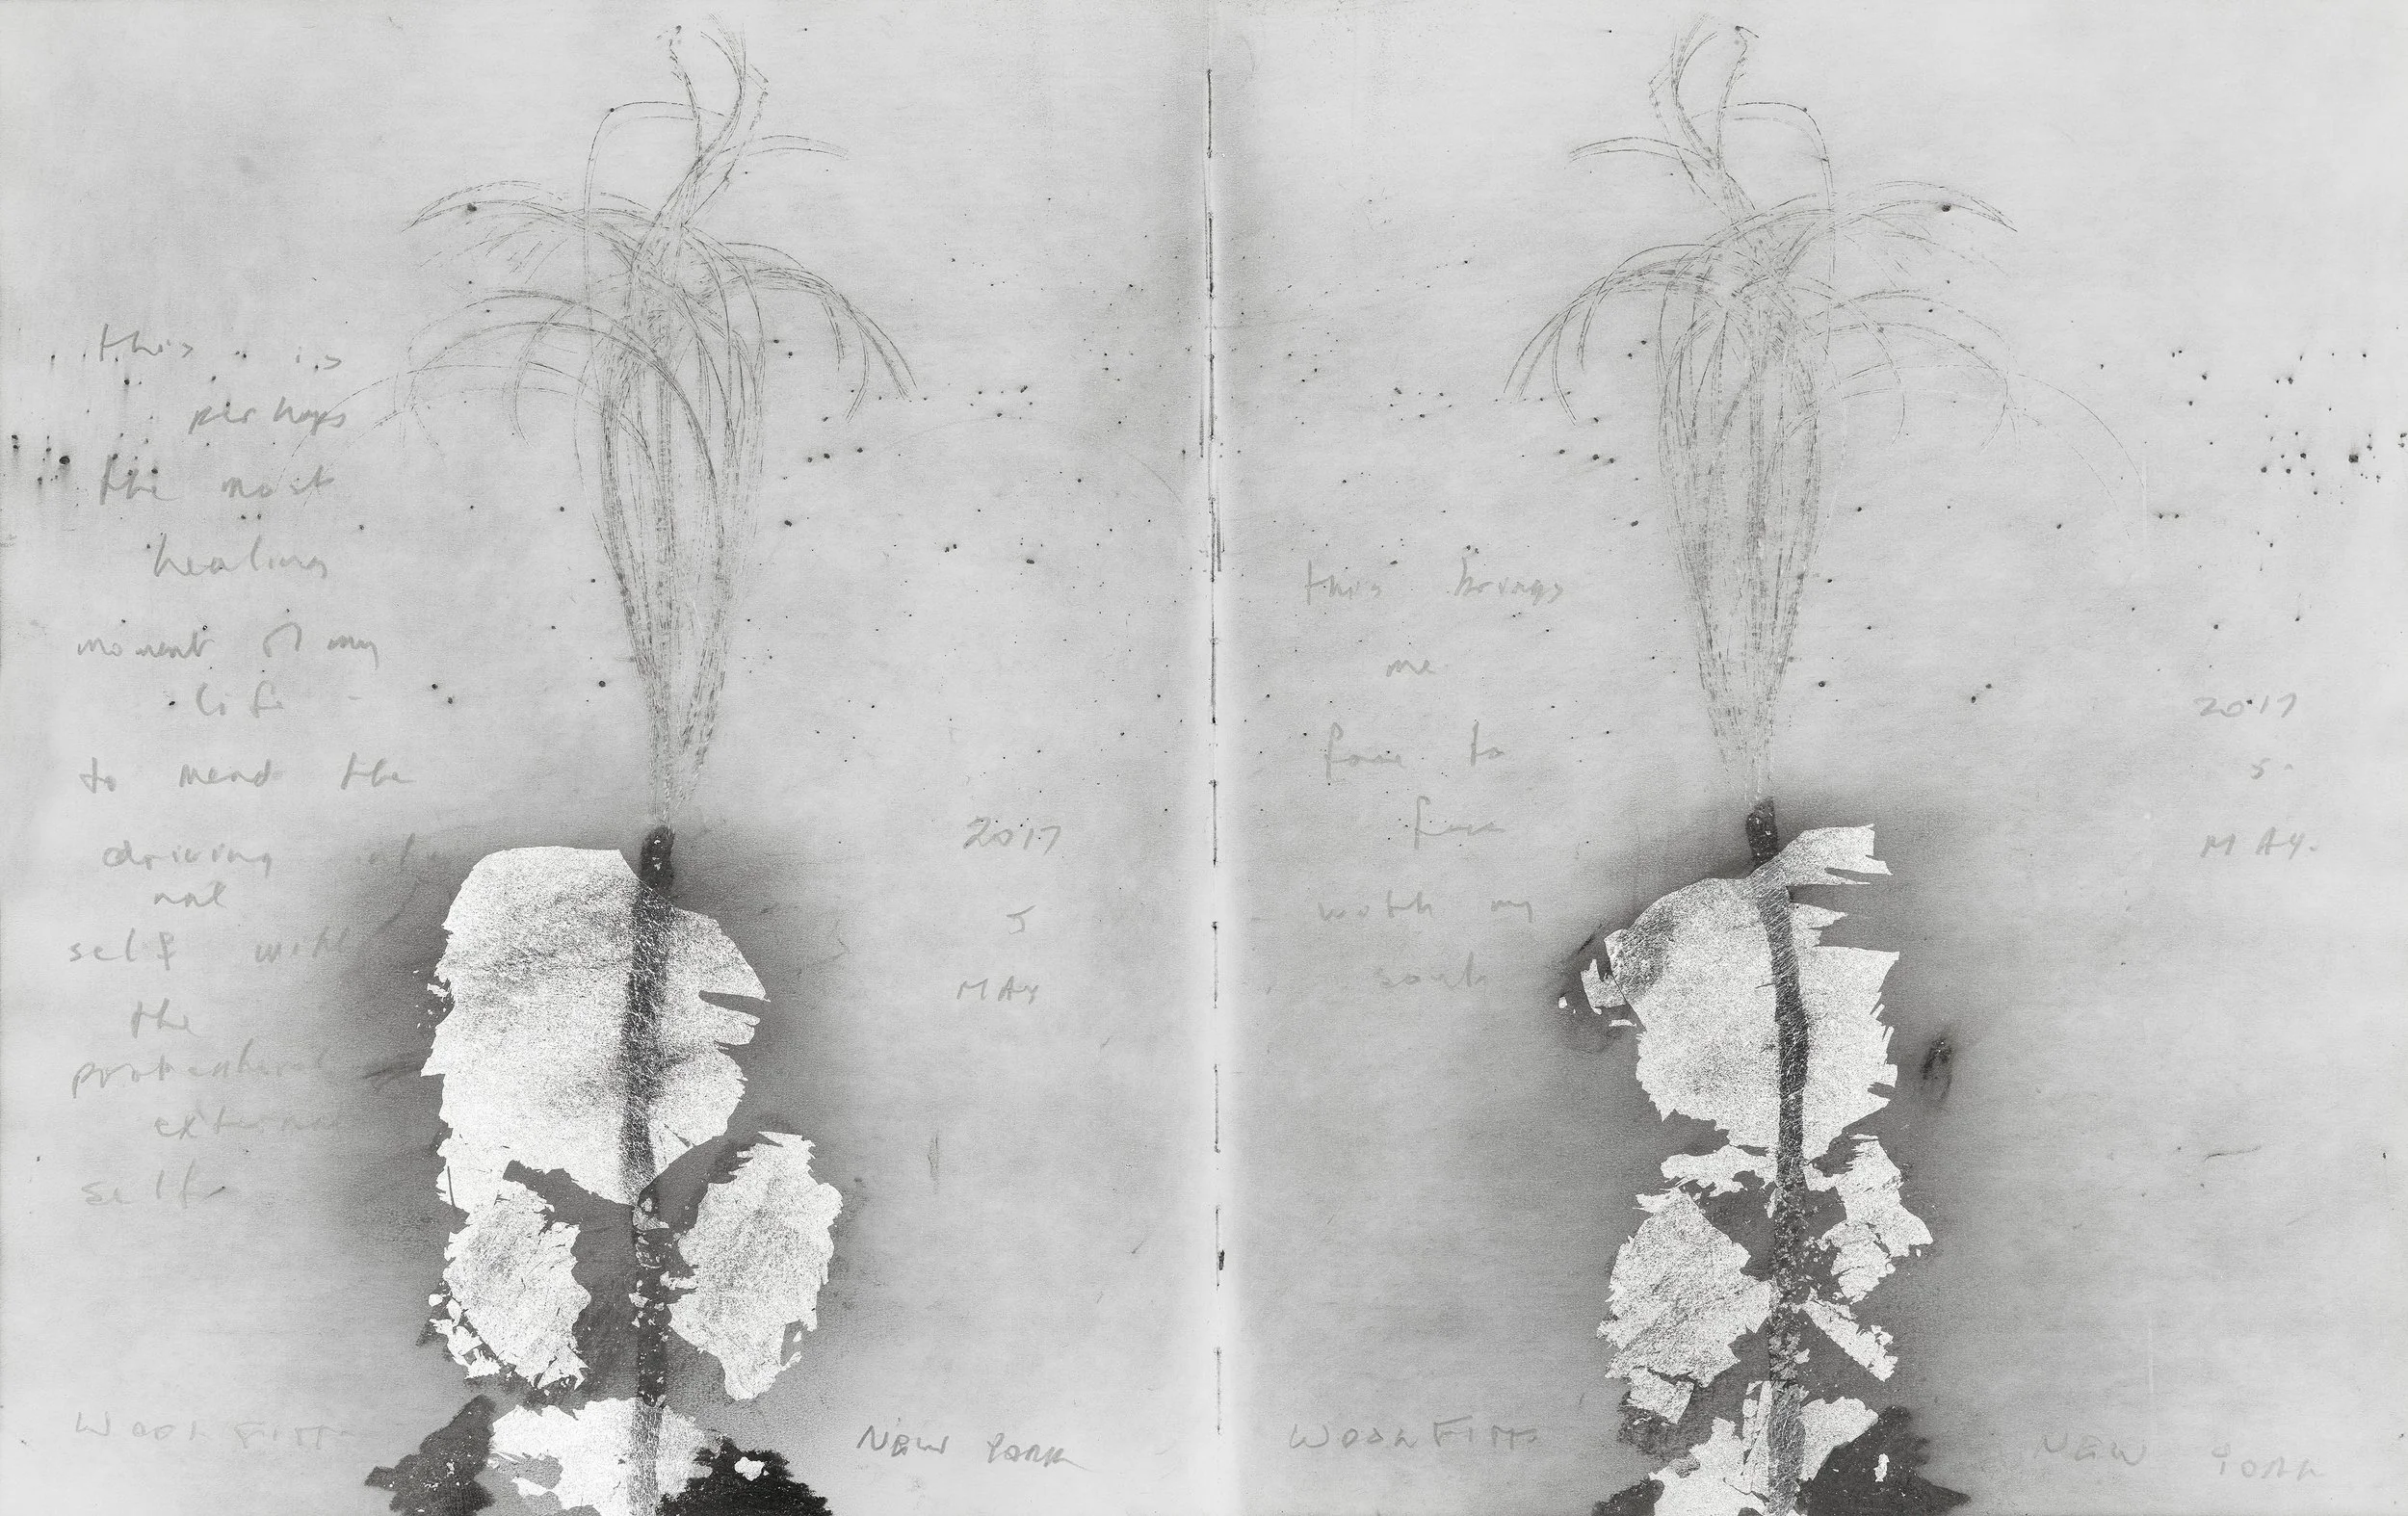 this is
perhaps
the most
healing
moment of my
life
to mend the
driving
self with
the
external
self
2017
5
MAY
NEW YORK
this brings
me
face to
face
with my
soul
2017
5.
MAY.
NEW YORK